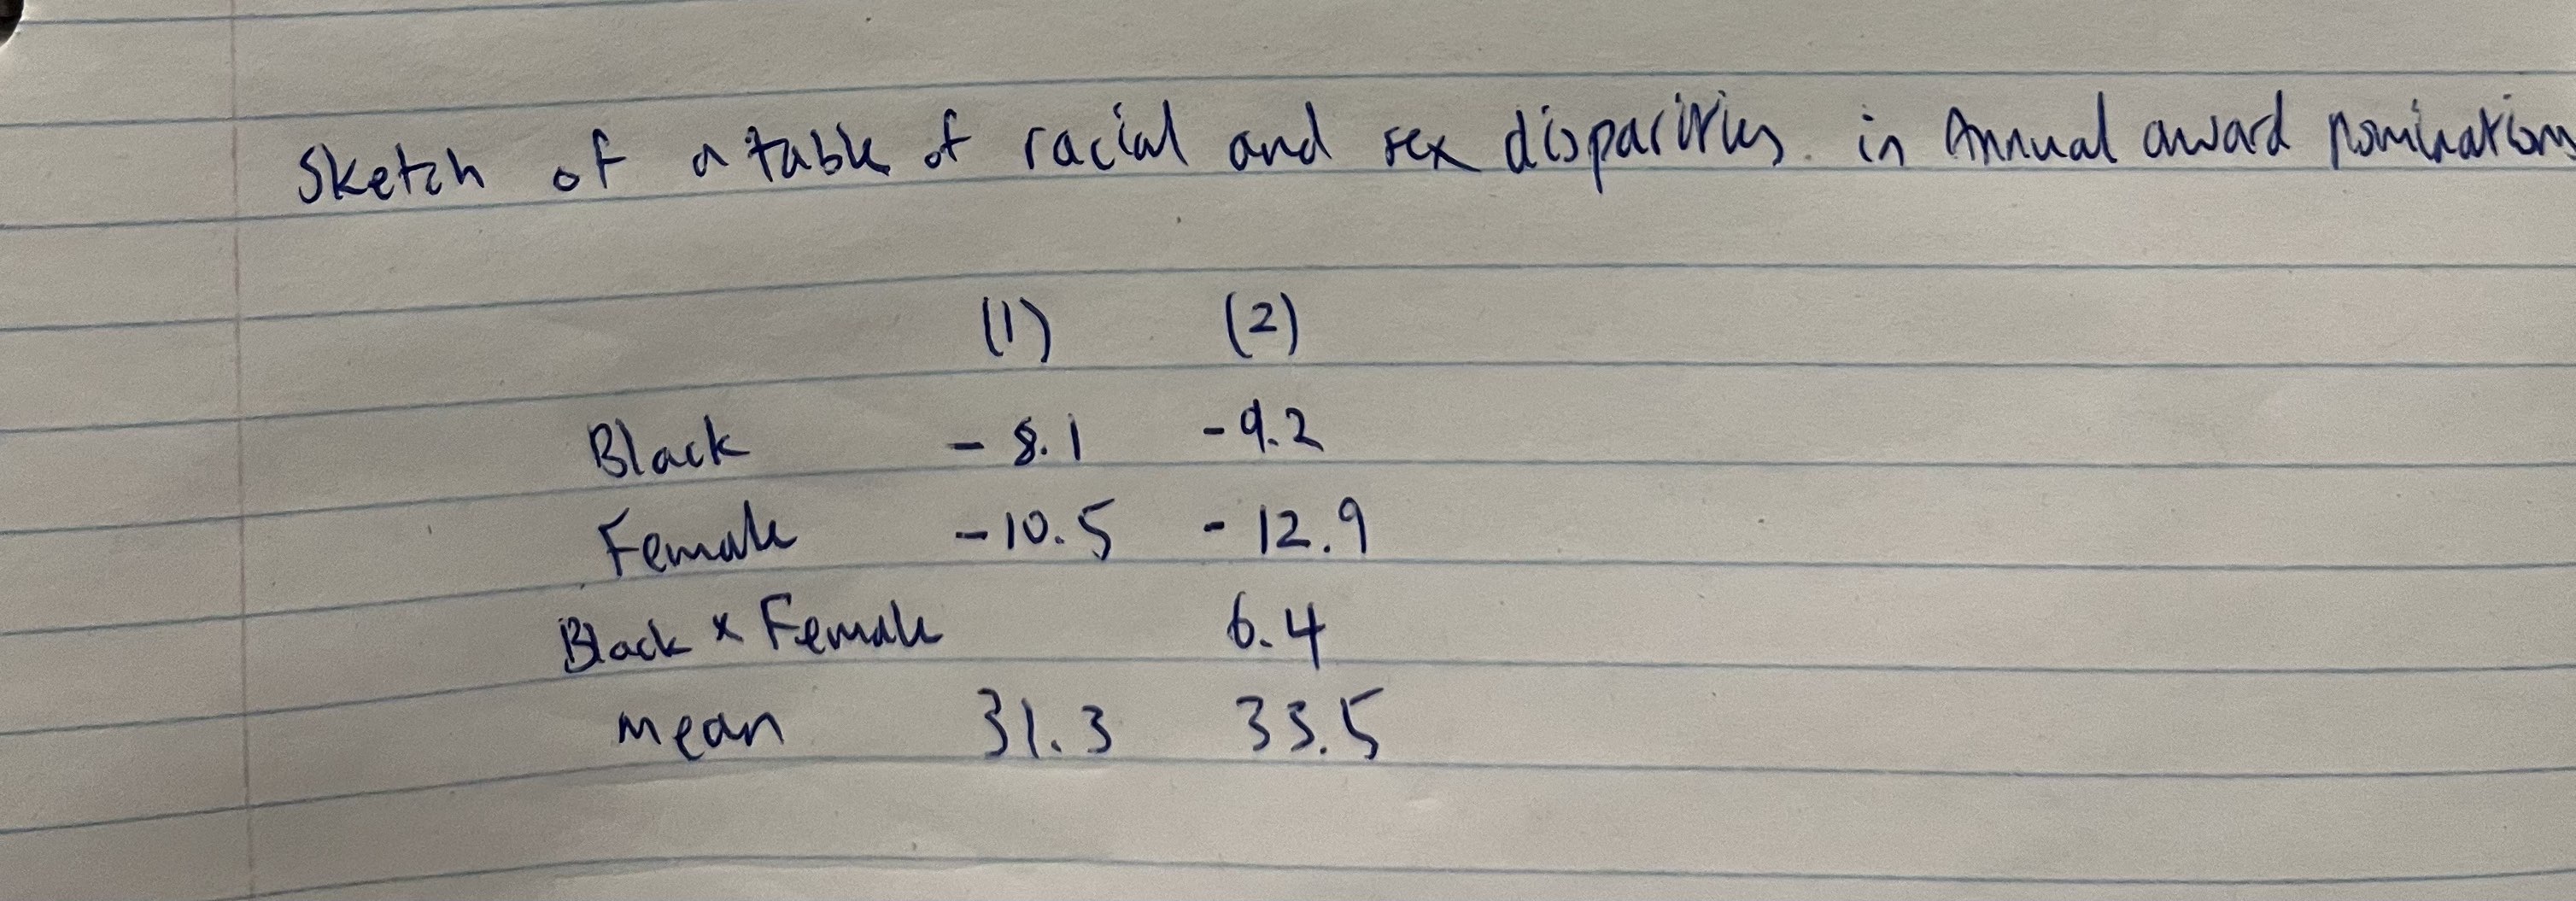 Sketch of a table of racial and sex disparities in Annual award nominations
(1) (2)
Black -8.1 -9.2
Female -10.5 -12.9
Black x Female 6.4
Mean 31.3 33.5